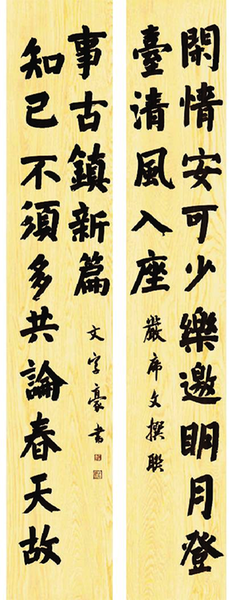 閑情安可少樂邀明月登
臺清風入座
嚴席文撰聯
知己不須多共論春天故
事古鎮新篇
文字豪書